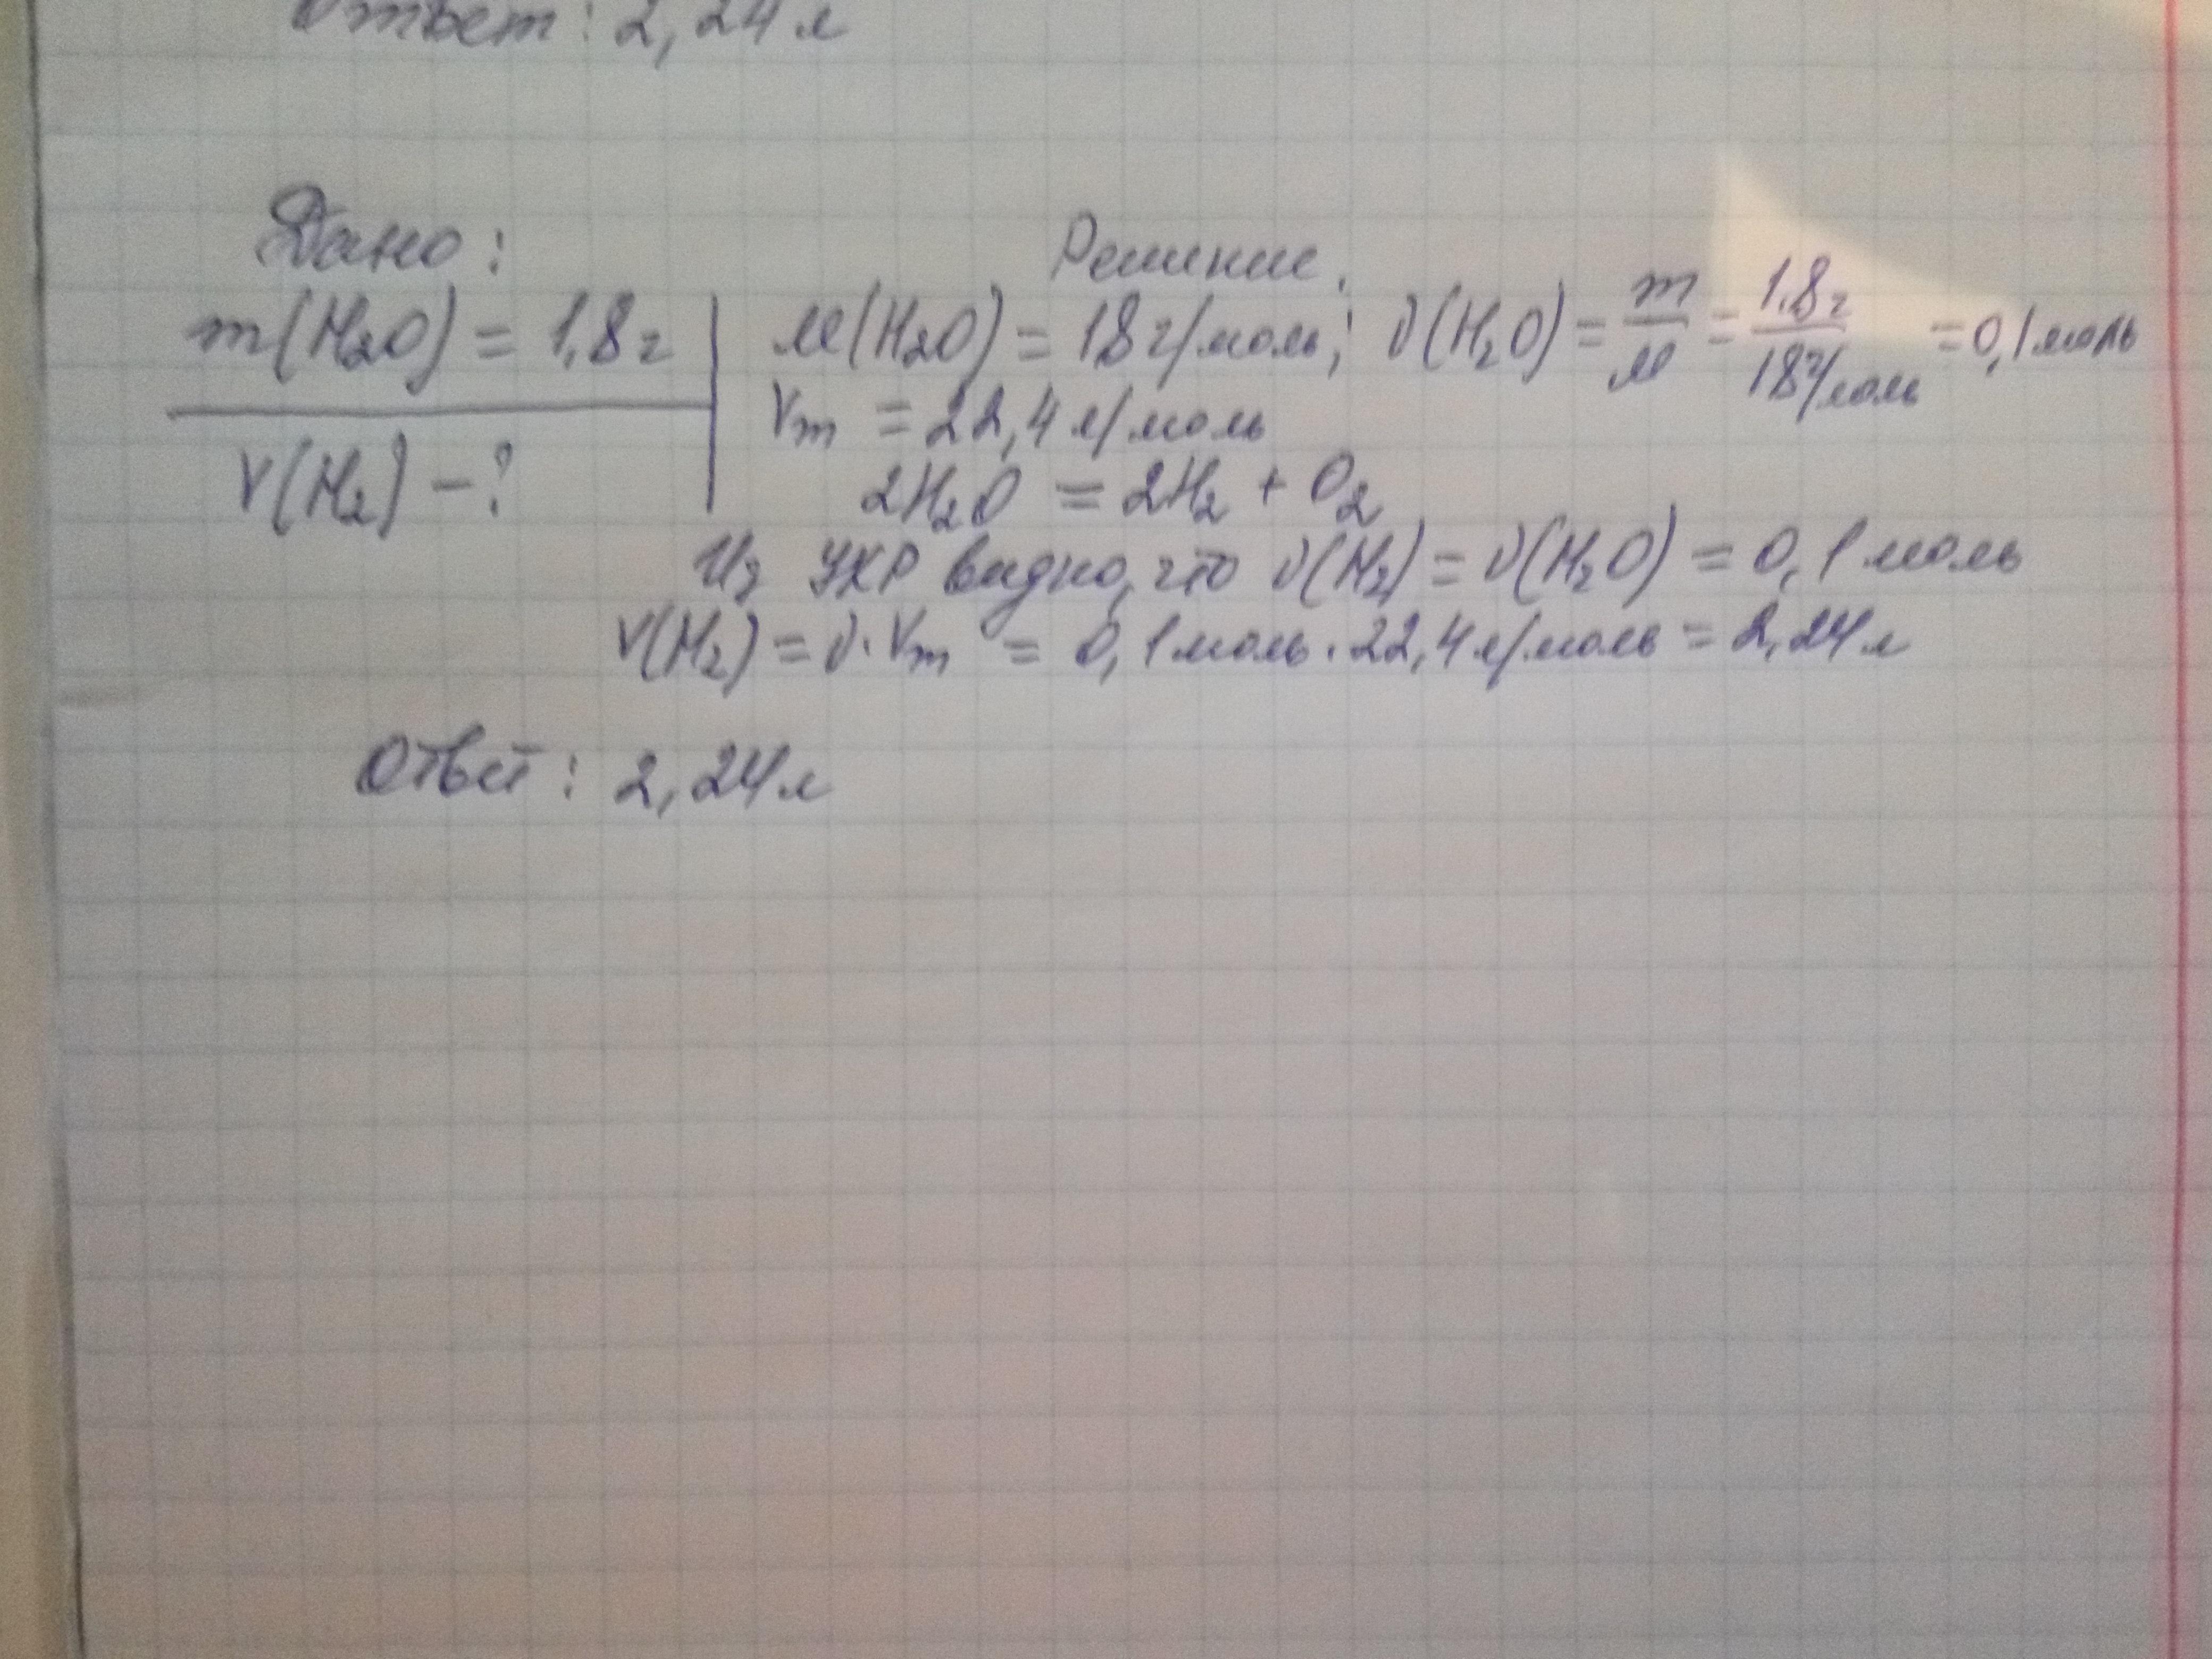 Ответ: 2,24 л
Дано: Решение:
m(H₂O) = 1,8 г M(H₂O) = 18 г/моль; ν(H₂O) = m/M = 1,8 г/18 г/моль = 0,1 моль
Vm = 22,4 л/моль
V(H₂) - ? 2H₂O = 2H₂ + O₂
Из УХР видно, что ν(H₂) = ν(H₂O) = 0,1 моль
V(H₂) = ν · Vm = 0,1 моль · 22,4 л/моль = 2,24 л
Ответ: 2,24 л